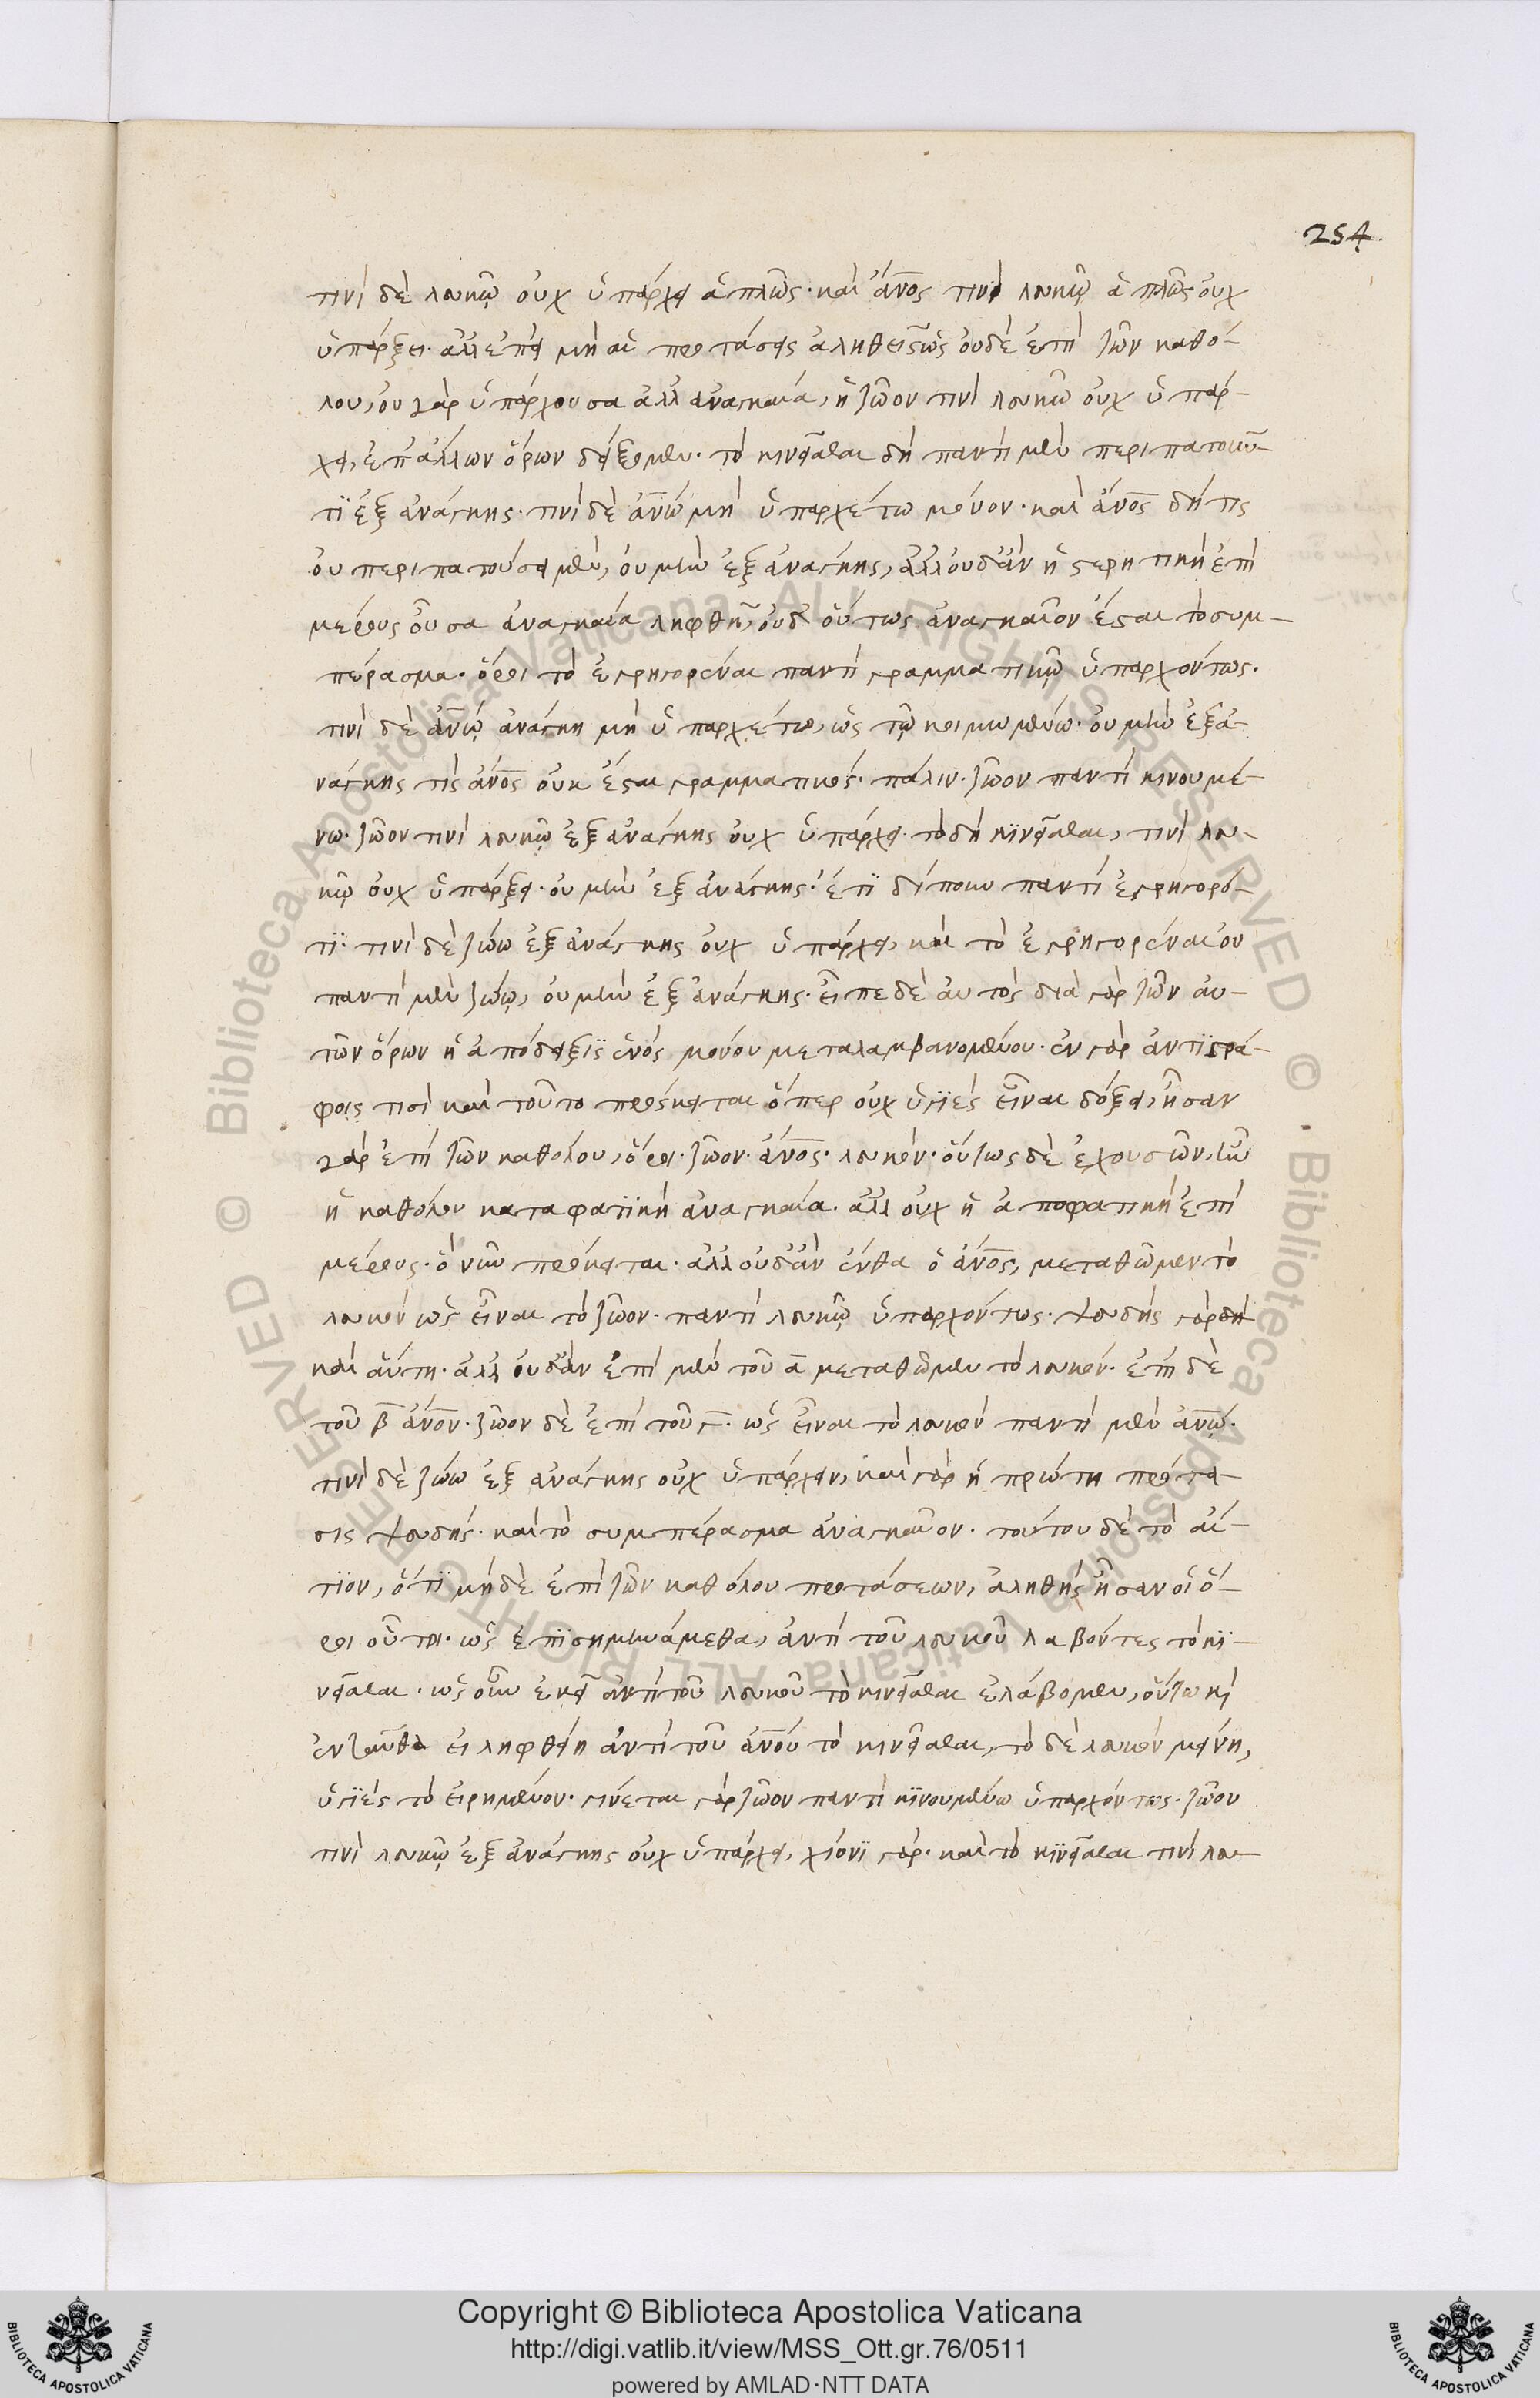 254.
τινὶ δὲ λευκῶ οὐχ ὑπάρχει ἁπλῶς· καὶ ἄνος τινὶ λευκῶ ἁπλῶς οὐχ
ὑπάρξει. ἀλλ' ἐπεὶ μὴ αἱ προτάσεις ἀληθεῖς ὡς οὐδὲ ἐπὶ τῶν καθό-
λου, οὐ γὰρ ὑπάρχουσα ἀλλ' ἀναγκαία, ἡ ζῶον τινὶ λευκῶ οὐχ ὑπάρ-
χει, ἐπ' ἄλλων ὅρων δείξομεν. τὸ κινεῖσθαι δὴ παντὶ μὲν περιπατοῦν-
τι ἐξ ἀνάγκης· τινὶ δὲ ἀνω μὴ ὑπαρχέτω μόνον· καὶ ἄνος δή τις
οὐ περιπατήσει μὲν, οὐ μὴν ἐξ ἀνάγκης, ἀλλ' οὐδ' ἂν ἡ στερητικὴ ἐπὶ
μέρους οὖσα ἀναγκαία ληφθῆ, οὐδ' οὕτως ἀναγκαῖον ἔσται τὸ συμ-
πέρασμα. ὅροι τὸ ἐγρηγορέναι παντὶ γραμματικῶ ὑπαρχόντως.
τινὶ δὲ ἀνω ἀνάγκη μὴ ὑπαρχέτω, ὡς τῶ κοιμωμένω. οὐ μὴν ἐξ ἀ-
νάγκης τὶς ἄνος οὐκ ἔσται γραμματικός. πάλιν. ζῶον παντὶ κινουμέ-
νω. ζῶον τινὶ λευκῶ ἐξ ἀνάγκης οὐχ ὑπάρχει. τὸ δὴ κινεῖσθαι, τινὶ λευ-
κῶ οὐχ ὑπάρξει. οὐ μὴν ἐξ ἀνάγκης. ἔτι δίπουν παντὶ ἐγρηγορό-
τι. τινὶ δὲ ζώω ἐξ ἀνάγκης οὐχ ὑπάρχει, καὶ τὸ ἐγρηγορέναι οὐ
παντὶ μὲν ζώω, οὐ μὴν ἐξ ἀνάγκης. εἶπε δὲ αὐτὸς διὰ γὰρ τῶν αὐ-
τῶν ὅρων ἡ ἀπόδειξις ἑνὸς μόνου μεταλαμβανομένου. ἐν γὰρ ἀντιγρά-
φοις τισὶ καὶ τοῦτο πρόσκειται ὅπερ οὐχ ὑγιὲς εἶναι δόξει, ἦσαν
γὰρ ἐπὶ τῶν καθόλου, ὅροι. ζῶον. ἄνος. λευκόν. οὕτως δὲ ἐχουσῶν, ἦν
ἡ καθόλου καταφατικὴ ἀναγκαία. ἀλλ' οὐχ ἡ ἀποφατικὴ ἐπὶ
μέρους. ὃ νῦν πρόκειται. ἀλλ' οὐδ' ἂν ἔνθα ὁ ἄνος, μεταθῶμεν τὸ
λευκὸν ὡς εἶναι τὸ ζῶον. παντὶ λευκῶ ὑπαρχόντως. ψευδὴς γὰρ δὴ
καὶ αὕτη. ἀλλ' οὐδ' ἂν ἐπὶ μὲν τοῦ α μεταθῶμεν τὸ λευκόν. ἐπὶ δὲ
τοῦ β ἄνον. ζῶον δὲ ἐπὶ τοῦ γ. ὡς εἶναι τὸ λευκὸν παντὶ μὲν ἀνω.
τινὶ δὲ ζώω ἐξ ἀνάγκης οὐχ ὑπάρχειν, καὶ γὰρ ἡ πρώτη πρότα-
σις ψευδής. καὶ τὸ συμπέρασμα ἀναγκαῖον. τούτου δὲ τὸ αἴ-
τιον, ὅτι μηδὲ ἐπὶ τῶν καθόλου προτάσεων, ἀληθὴς ἦσαν οἱ ὅ-
ροι οὗτοι. ὡς ἐπισημηνάμεθα, ἀντὶ τοῦ λευκοῦ λαβόντες τὸ κι-
νεῖσθαι. ὡς οὖν ἐκεῖ ἀντὶ τοῦ λευκοῦ τὸ κινεῖσθαι ἐλάβομεν, οὕτω κἂ
ἐνταῦθα εἰ ληφθείη ἀντὶ τοῦ ἀνου τὸ κινεῖσθαι, τὸ δὲ λευκὸν μείνη,
ὑγιὲς τὸ εἰρημένον. γίνεται γὰρ ζῶον παντὶ κινουμένω ὑπαρχόντως. ζῶον
τινὶ λευκῶ ἐξ ἀνάγκης οὐχ ὑπάρχει, χιόνι γάρ. καὶ τὸ κινεῖσθαι τινὶ λευ-
Copyright © Biblioteca Apostolica Vaticana
http://digi.vatlib.it/view/MSS_Ott.gr.76/0511
powered by AMLAD·NTT DATA